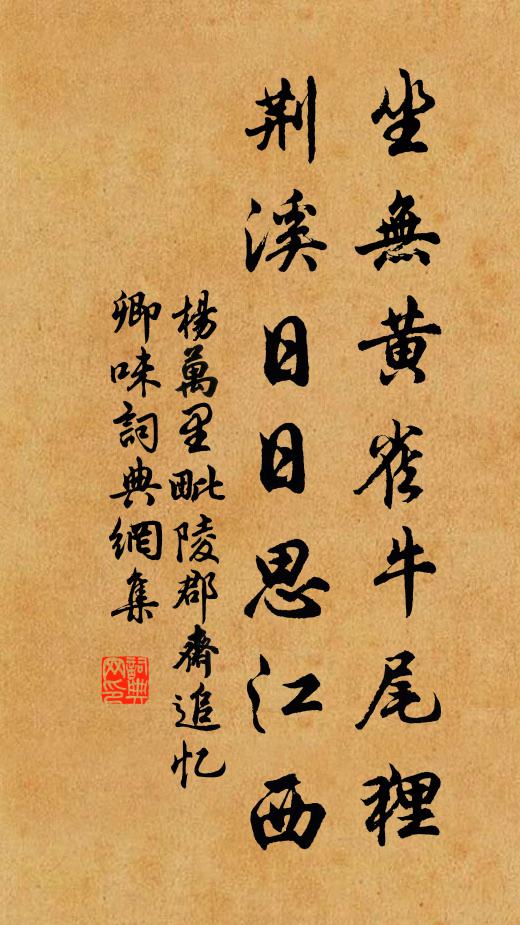 坐無黃雀牛尾狸
荆溪日日思江西
楊萬里毗陵郡齋追忆
卿味詞典網集
詞典网印